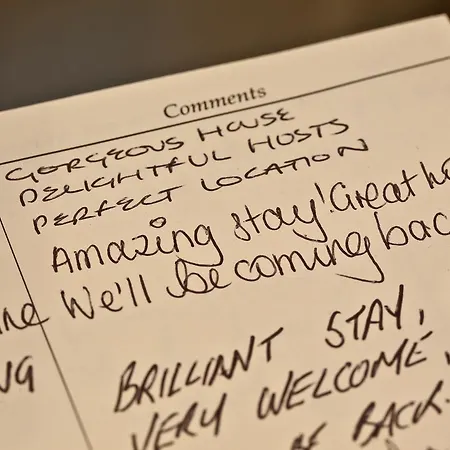 Comments
GORGEOUS HOUSE
DELIGHTFUL HOSTS
PERFECT LOCATION
Amazing stay! Great
We'll be coming bac
BRILLIANT STAY,
VERY WELCOME,
BE BACK.